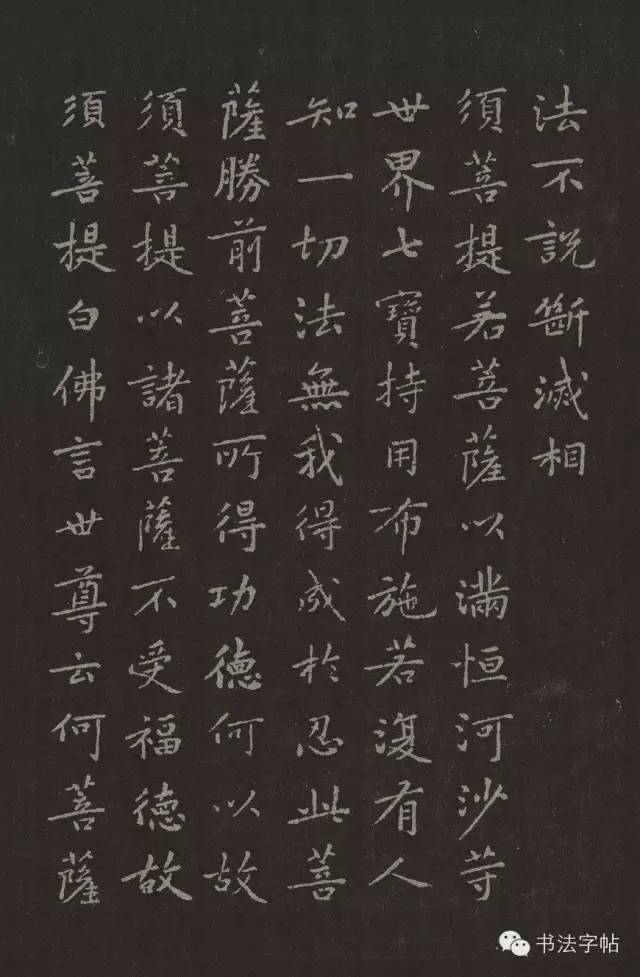 法不說斷滅相
須菩提若菩薩以滿恒河沙等
世界七寶持用布施若復有人
知一切法無我得成於忍此菩
薩勝前菩薩所得功德何以故
須菩提以諸菩薩不受福德故
須菩提白佛言世尊云何菩薩
书法字帖